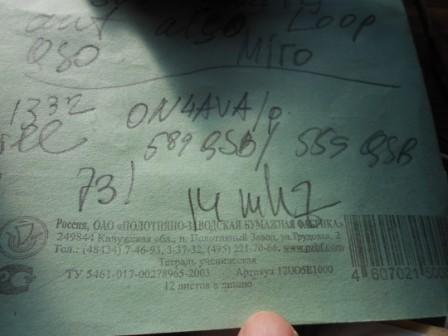 QSO MITO
1332 ON4AVA/p
589 QSB/ 559 QSB
73! 14 mhz
Россия, ОАО «ПОЛОТНЯНО-ЗАВОДСКАЯ БУМАЖНАЯ ФАБРИКА»
249844 Калужская обл., п. Полотняный Завод, ул.Трудовая, 2
Тел.: (48434) 7-46-93, 3-37-32, (495) 221-70-64, www.pzbf.com
Тетрадь ученическая
ТУ 5461-017-00278965-2003 Артикул 12U05E1000
12 листов в линию
4 607021 500